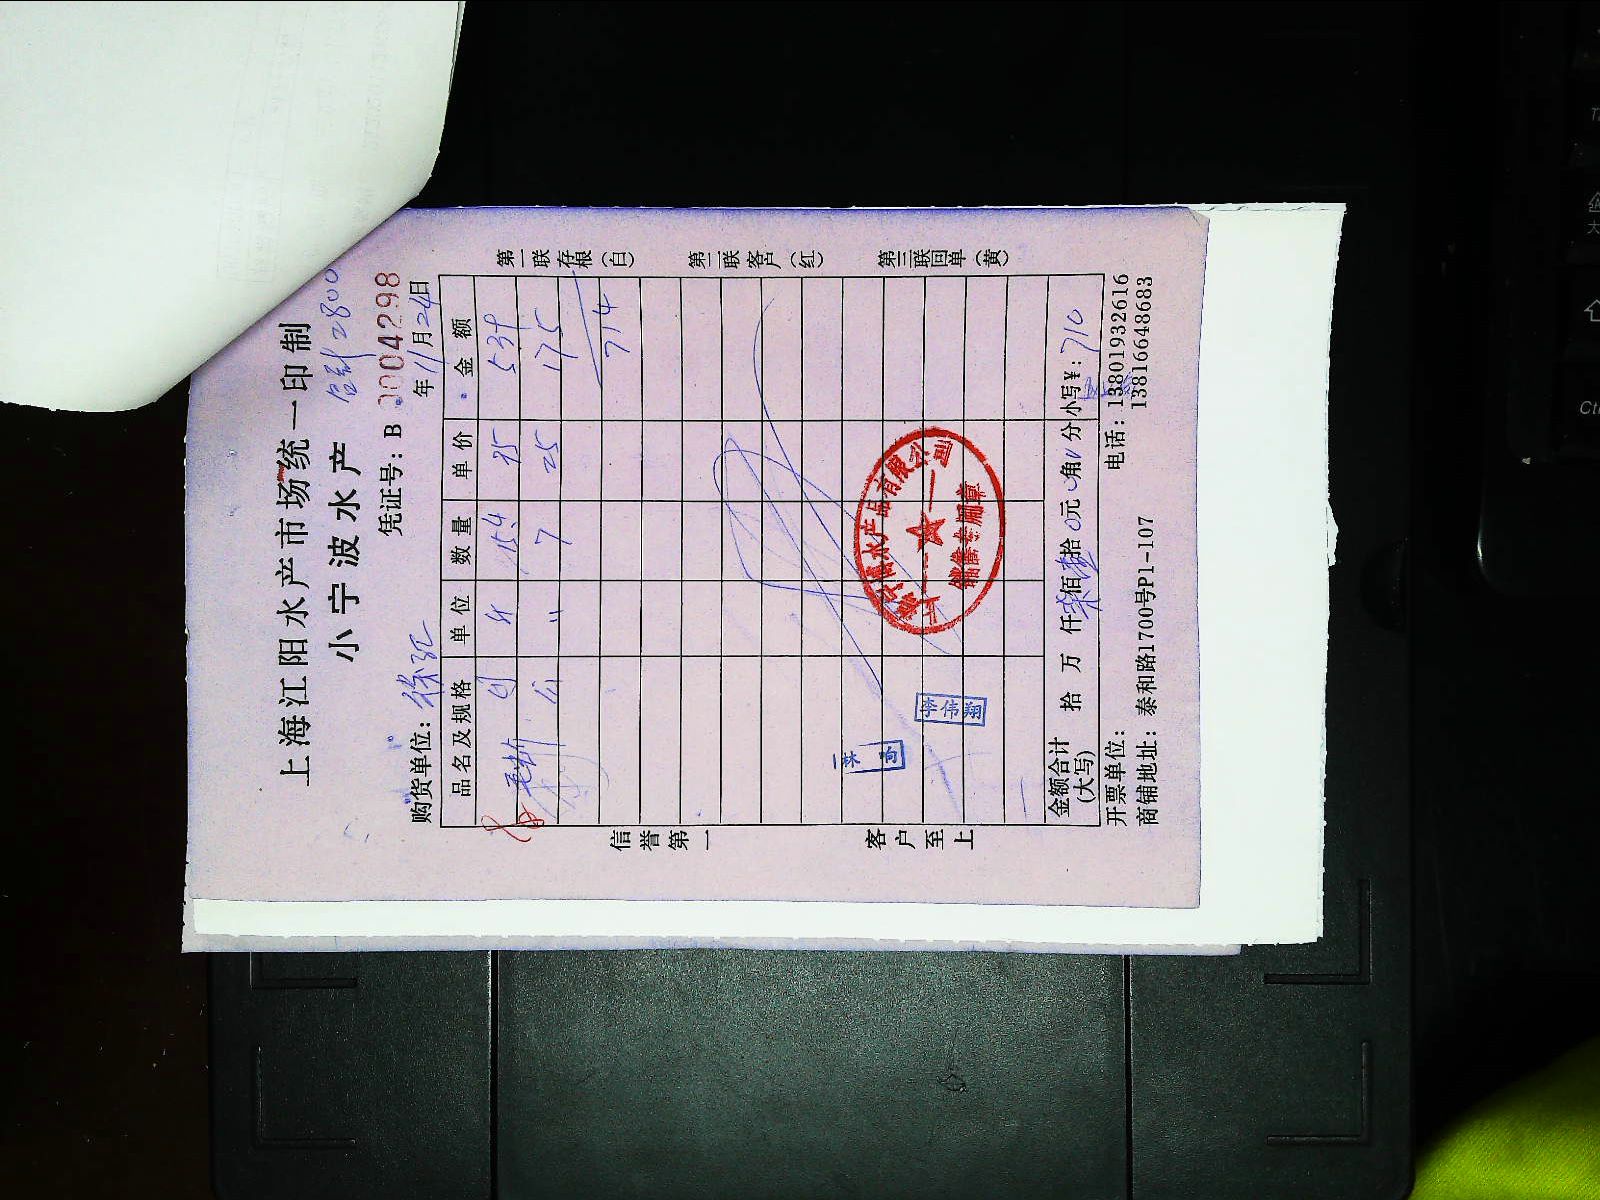 上海江阳水产市场统一印制
小宁波水产
合计2800
凭证号：B 0004298
购货单位：徐汇 年11月24日
品名及规格 单位 数量 单价 金额
斤 15.4 35 539
〃 7 25 175
714
第一联存根（白）
第二联客户（红）
第三联回单（黄）
信誉第一
客户至上
水产品有限公司
销售专用章
李伟翔
金额合计（大写） 拾 万 仟 柒佰 拾 0元 角 分 小写¥：710
开票单位： 电话：13801932616
商铺地址：泰和路1700号P1-107 13816648683